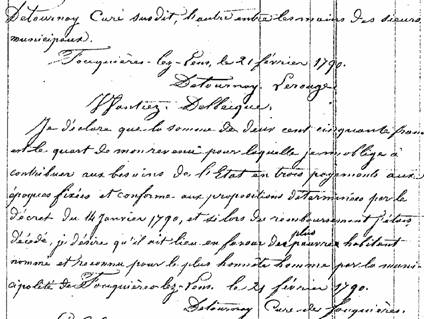 Detournay Curé susdit, l'autre entre les mains des sieurs
municipaux.
Fouquières-lez-Lens, le 21 février 1790.
Detournay. Lerouge.
Wantiez. Delbecque.
Je déclare que la somme de deux cent cinquante francs
est le quart de mon revenu pour laquelle je m'oblige à
contribuer aux besoins de l'Etat en trois payements aux
époques fixées et conforme aux propositions déterminées par le
décret du 14 janvier 1790, et si lors du remboursement j'étais
décédé, je désire qu'il ait lieu en faveur des plus pauvres habitant
nommé et reconnu pour le plus honnête homme par la muni-
cipalité de Fouquières-lez-Lens. le 21 février 1790.
Detournay Curé de Fouquières.